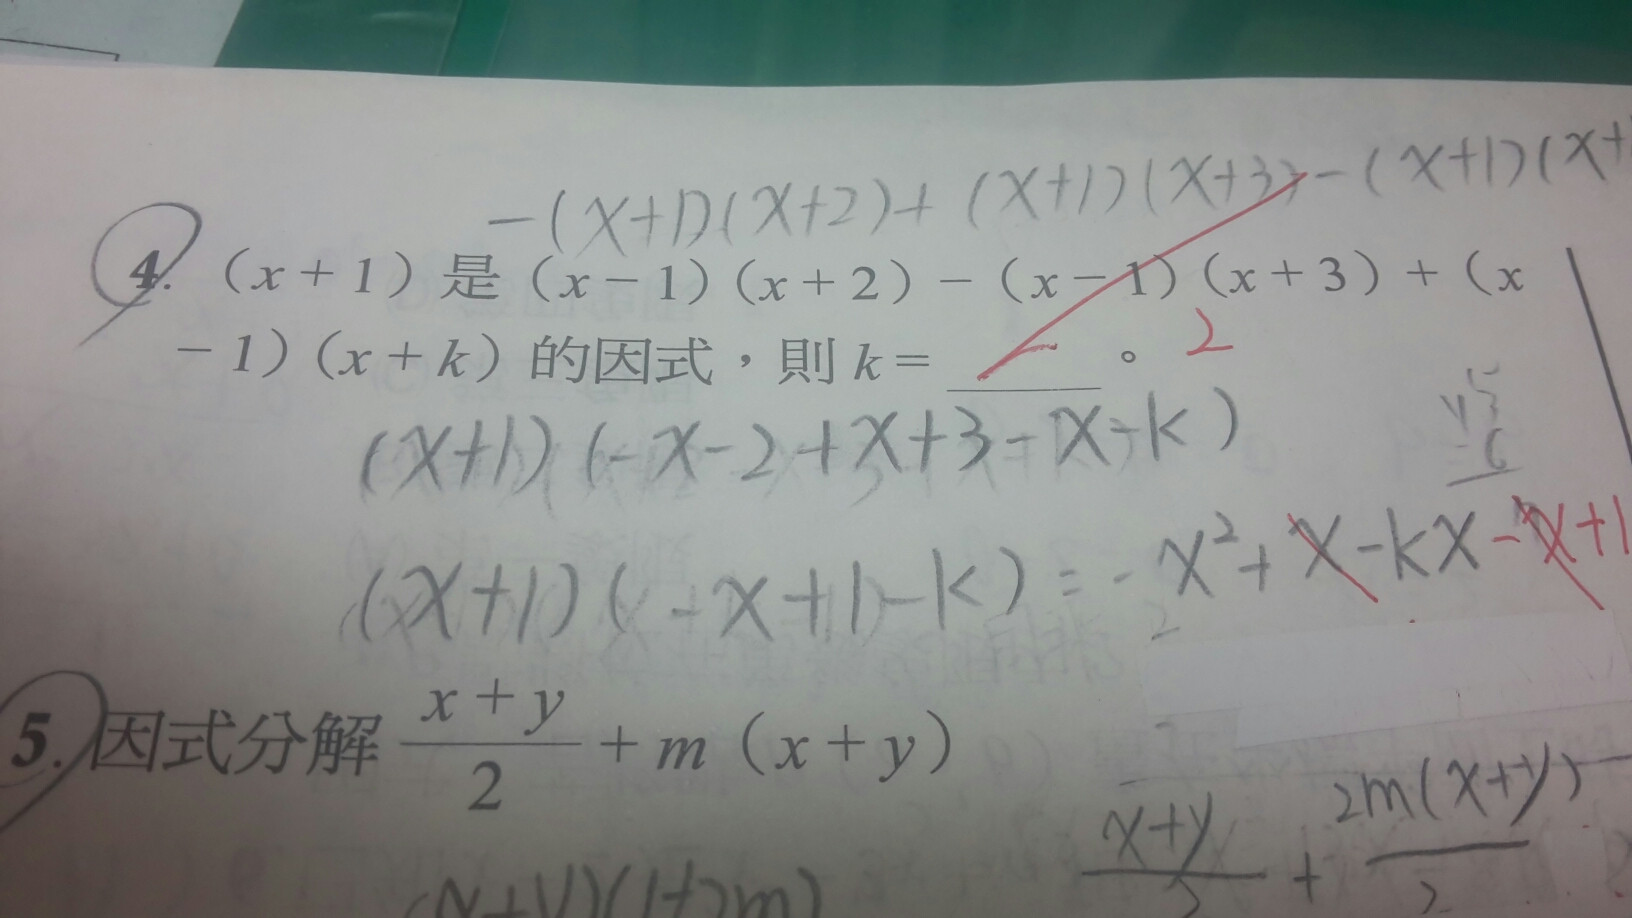 -(x+1)(x+2)+(x+1)(x+3)-(x+1)(x+
4.(x+1)是(x-1)(x+2)-(x-1)(x+3)+(x
-1)(x+k)的因式,則k= 。 2
(x+1)(-x-2+x+3-x-k)
(x+1)(-x+1-k)=-x²+x-kx-x+1
5.因式分解 (x+y)/2 +m(x+y)
(x+y)/2 + 2m(x+y)/2
(x+y)(1+2m)